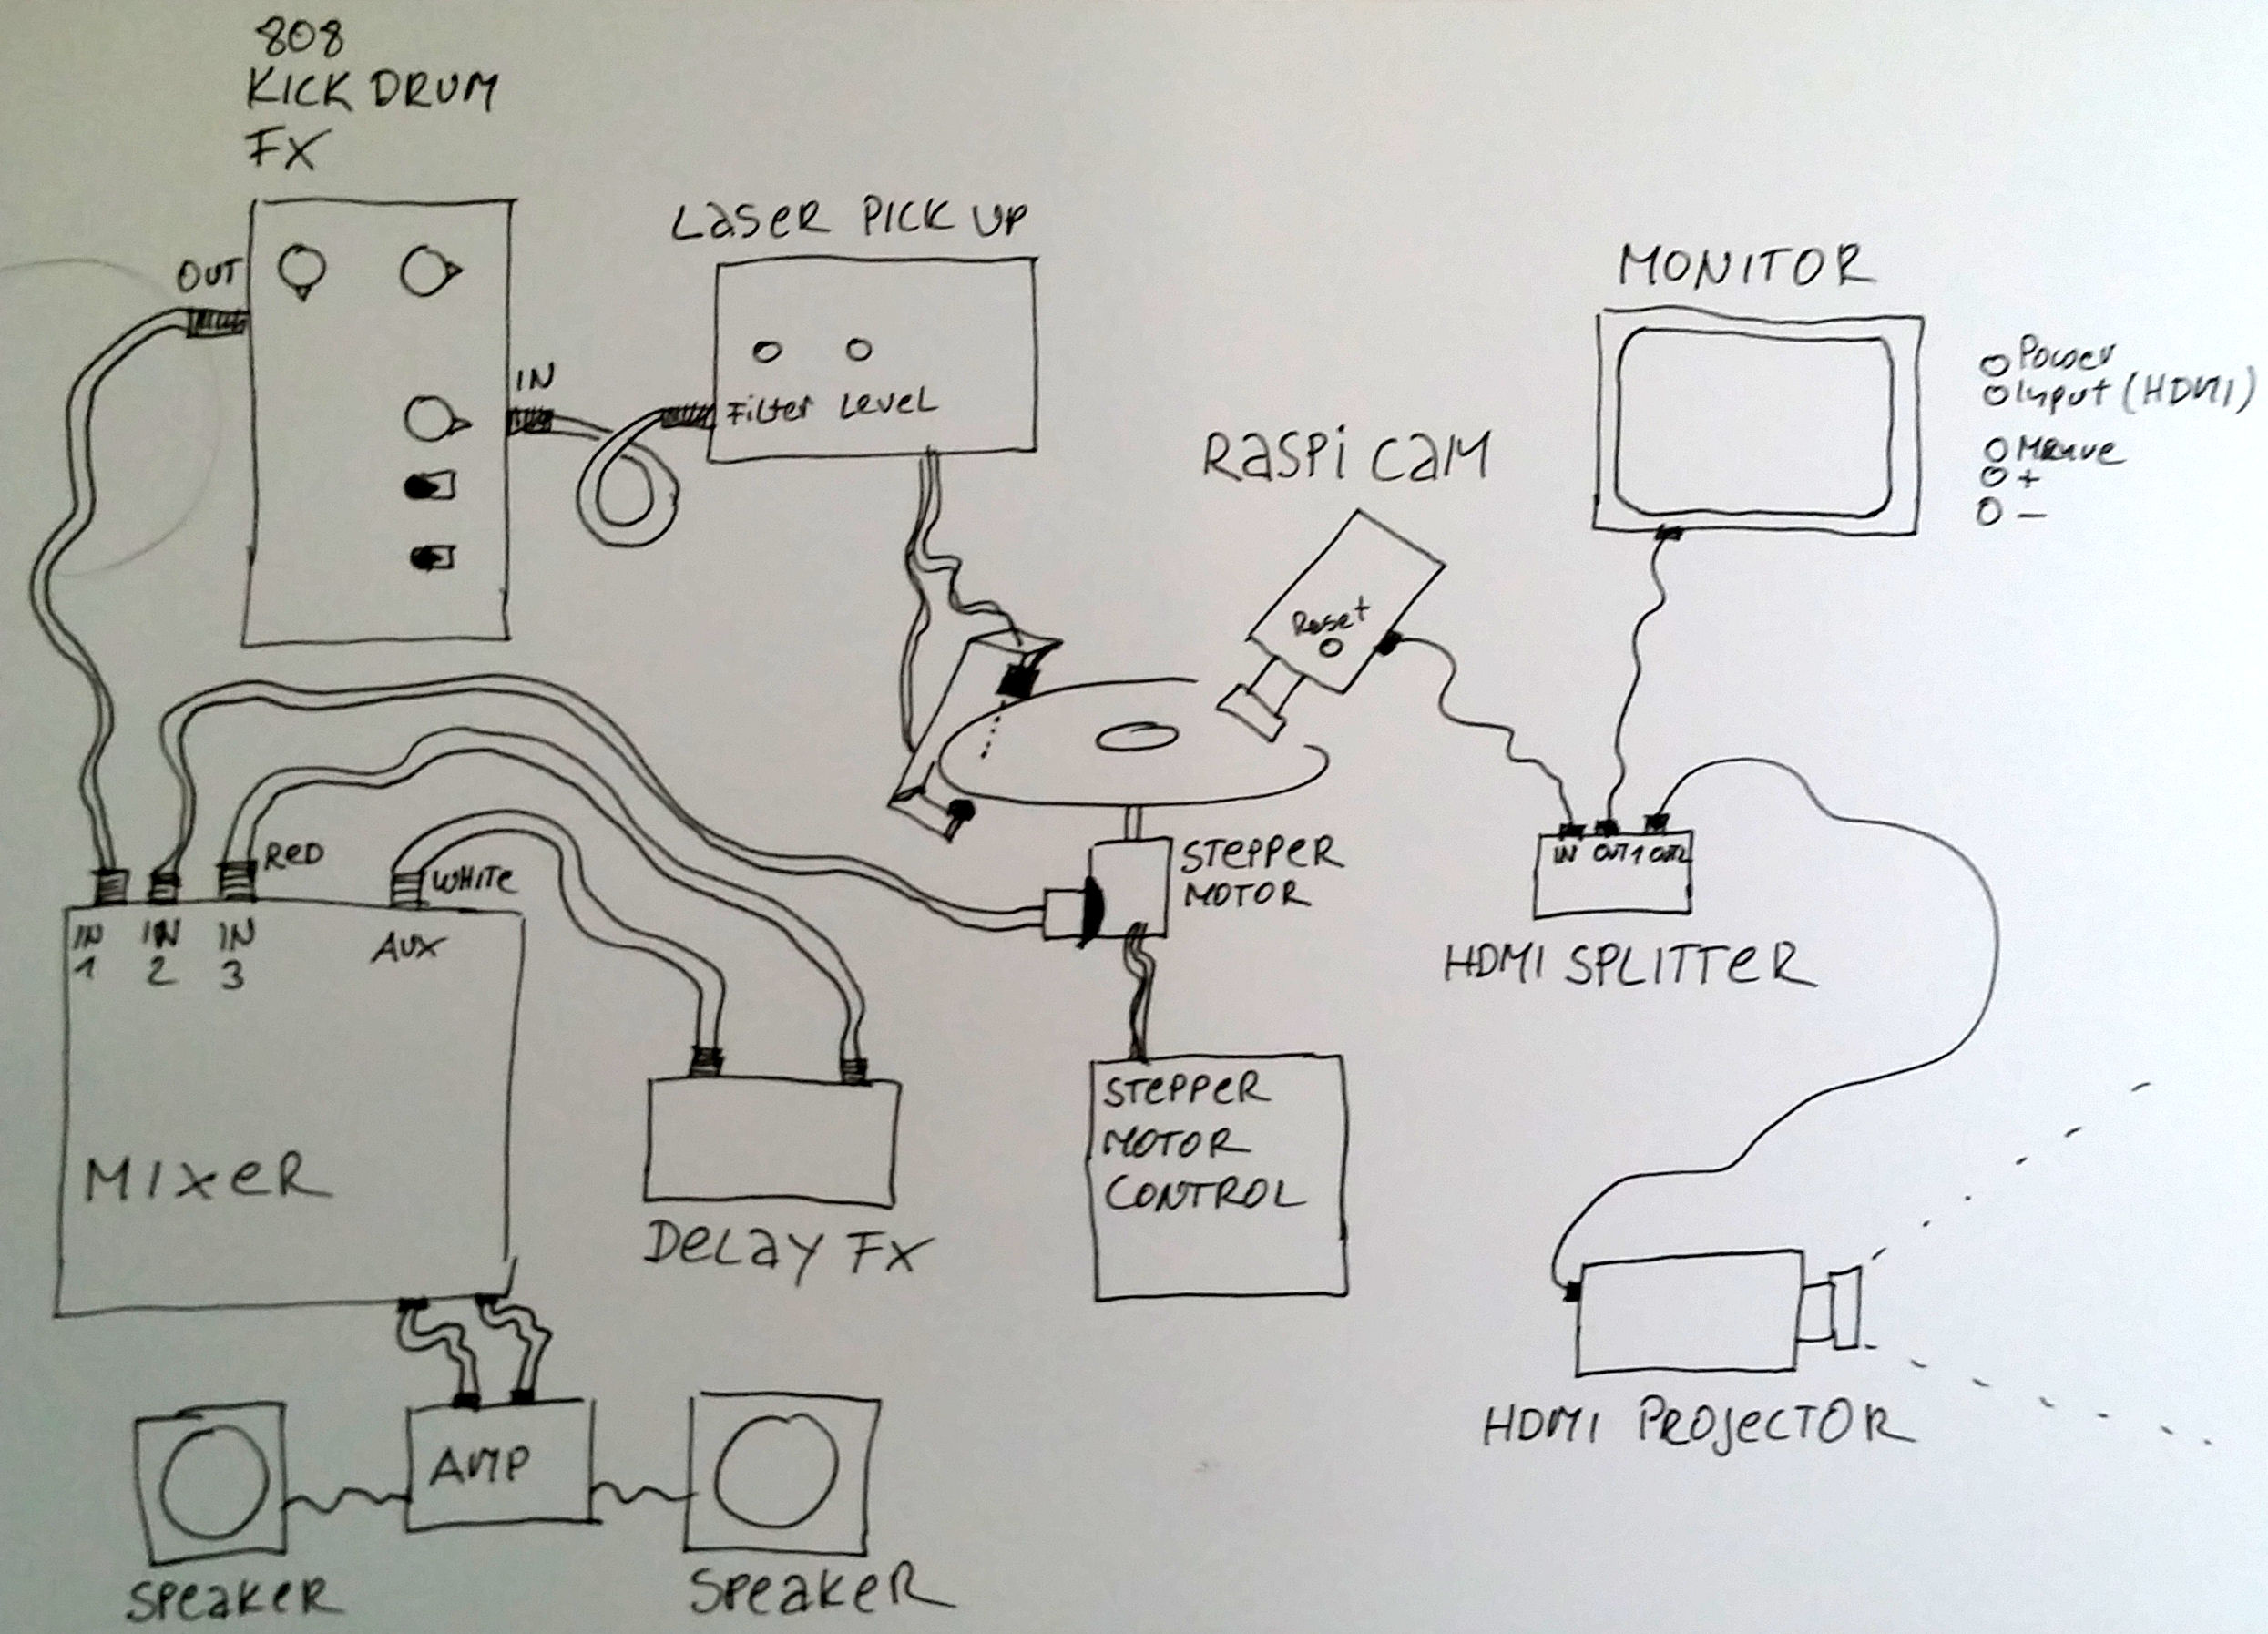 808
KICK DRUM
FX
OUT
IN
LaSeR PICK UP
Filter LeveL
RaSPi CaM
Reset
MONITOR
Power
Input (HDMI)
+
-
IN OUT1 OUT2
HDMI SPLITTeR
STePPeR
MOTOR
ReD
WHITe
IN
1
IN
2
IN
3
AUX
MIXeR
DeLay FX
STePPeR
MOTOR
CONTROL
AMP
SPeakeR
SPeakeR
HDMI PROJeCTOR